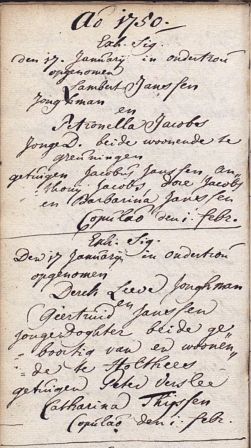 Ao 1750.
Exh. Sig.
den 17. January in ondertrou
opgenomen
Lambert Janssen
Jonghman
en
Petronella Jacobs
JongeD. beide woonende te
greuningen
getuigen Jacobus Janssen an-
thony Jacobs, Jacobs
en Barbarina Janssen
Copulao den 1. febr.
Exh. Sig.
Den 17 January in ondertrou
opgenomen
Derck Jonghman
en
Geertruid Janssen
jongedoghter beide ge-
boortig van en woonen-
de te Holthees
getuigen Peter Verslee
Catharina Thijssen
Copulao den 1. febr.